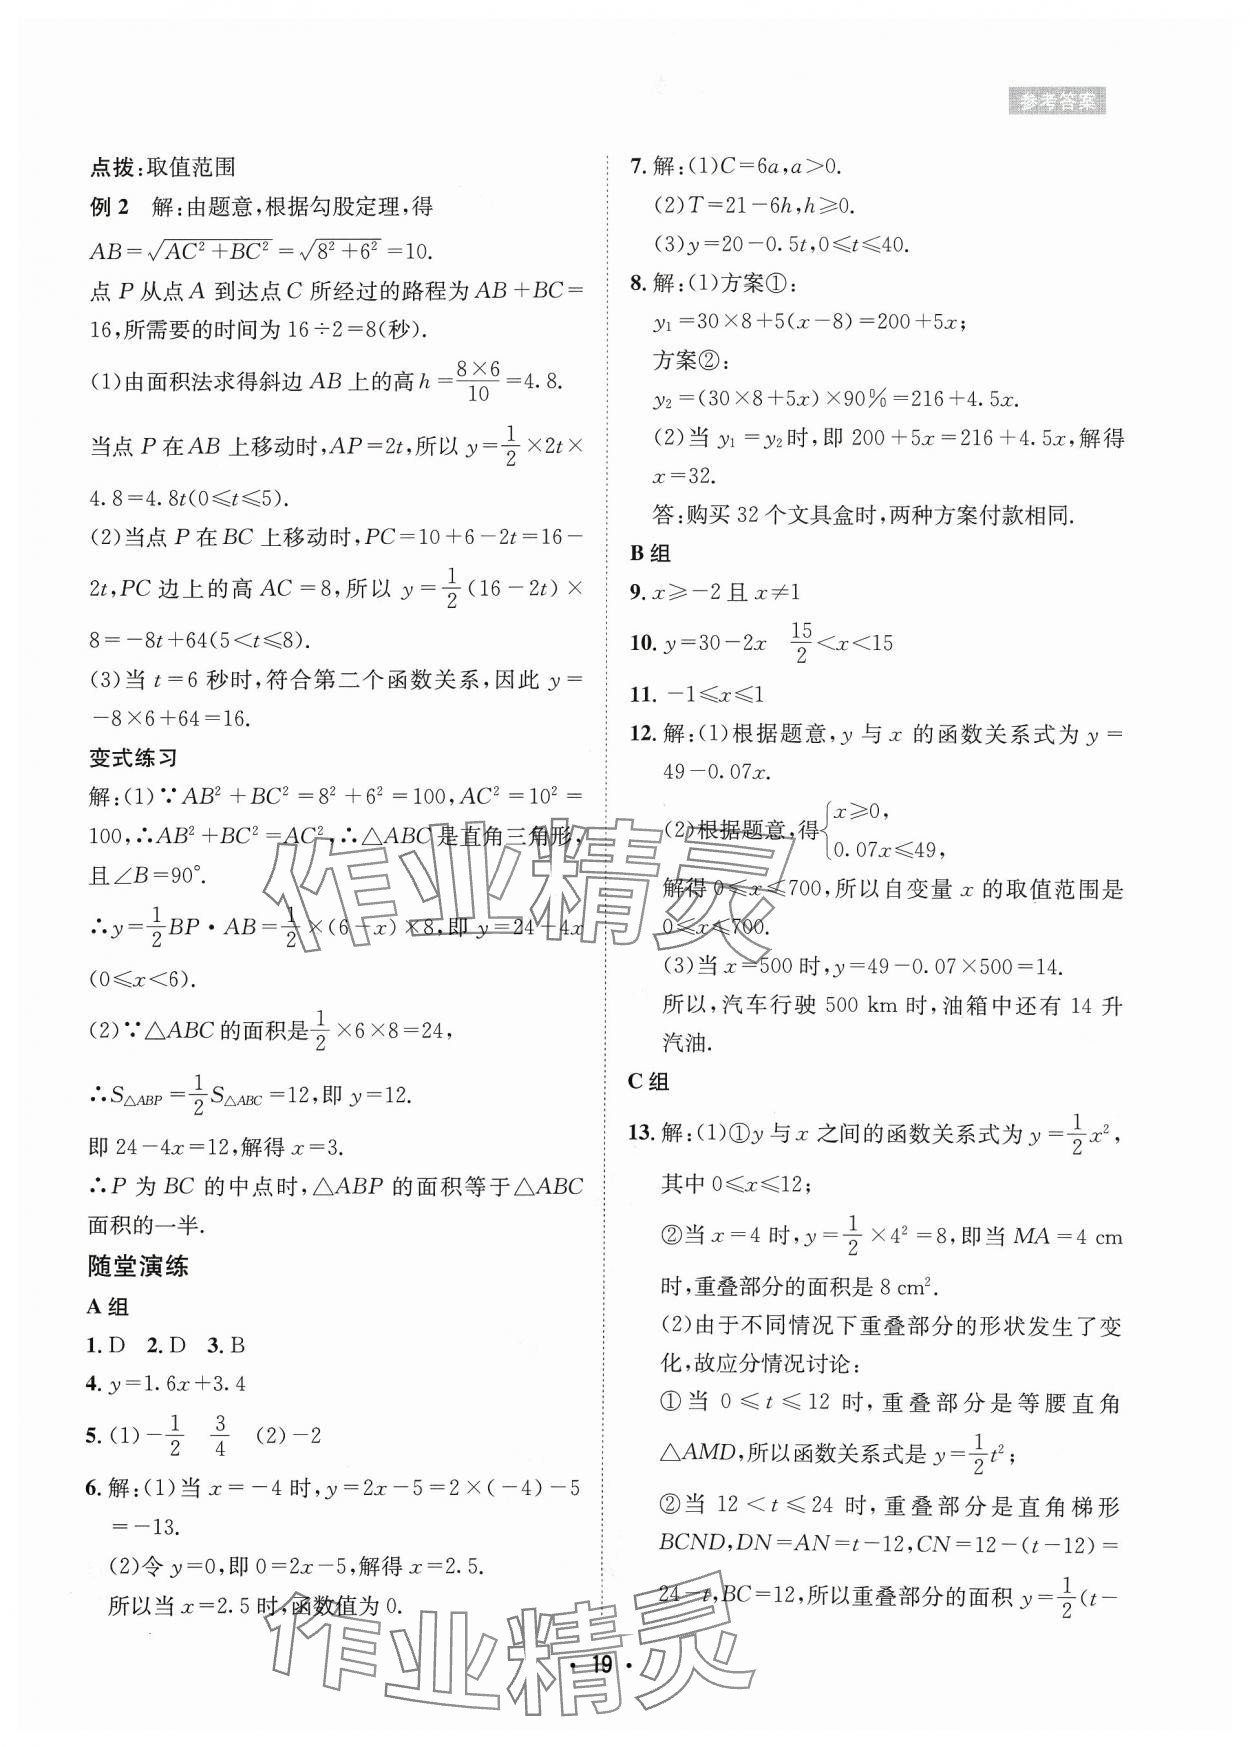 参考答案
点拨:取值范围
例2 解:由题意,根据勾股定理,得
AB=√(AC²+BC²)=√(8²+6²)=10.
点P从点A到达点C所经过的路程为AB+BC=
16,所需要的时间为16÷2=8(秒).
(1)由面积法求得斜边AB上的高h=8×6/10=4.8.
当点P在AB上移动时,AP=2t,所以y=1/2×2t×
4.8=4.8t(0⩽t⩽5).
(2)当点P在BC上移动时,PC=10+6-2t=16-
2t,PC边上的高AC=8,所以y=1/2(16-2t)×
8=-8t+64(5<t⩽8).
(3)当t=6秒时,符合第二个函数关系,因此y=
-8×6+64=16.
变式练习
解:(1)∵AB²+BC²=8²+6²=100,AC²=10²=
100,∴AB²+BC²=AC²,∴△ABC是直角三角形,
且∠B=90°.
∴y=1/2BP·AB=1/2×(6-x)×8,即y=24-4x
(0⩽x<6).
(2)∵△ABC的面积是1/2×6×8=24,
∴S△ABP=1/2S△ABC=12,即y=12.
即24-4x=12,解得x=3.
∴P为BC的中点时,△ABP的面积等于△ABC
面积的一半.
随堂演练
A组
1.D 2.D 3.B
4.y=1.6x+3.4
5.(1)-1/2 3/4 (2)-2
6.解:(1)当x=-4时,y=2x-5=2×(-4)-5
=-13.
(2)令y=0,即0=2x-5,解得x=2.5.
所以当x=2.5时,函数值为0.
7.解:(1)C=6a,a>0.
(2)T=21-6h,h⩾0.
(3)y=20-0.5t,0⩽t⩽40.
8.解:(1)方案①:
y₁=30×8+5(x-8)=200+5x;
方案②:
y₂=(30×8+5x)×90%=216+4.5x.
(2)当y₁=y₂时,即200+5x=216+4.5x,解得
x=32.
答:购买32个文具盒时,两种方案付款相同.
B组
9.x⩾-2且x≠1
10.y=30-2x 15/2<x<15
11.-1⩽x⩽1
12.解:(1)根据题意,y与x的函数关系式为y=
49-0.07x.
(2)根据题意,得{x⩾0,
0.07x⩽49,
解得0⩽x⩽700,所以自变量x的取值范围是
0⩽x⩽700.
(3)当x=500时,y=49-0.07×500=14.
所以,汽车行驶500 km时,油箱中还有14升
汽油.
C组
13.解:(1)①y与x之间的函数关系式为y=1/2x²,
其中0⩽x⩽12;
②当x=4时,y=1/2×4²=8,即当MA=4 cm
时,重叠部分的面积是8 cm².
(2)由于不同情况下重叠部分的形状发生了变
化,故应分情况讨论:
①当0⩽t⩽12时,重叠部分是等腰直角
△AMD,所以函数关系式是y=1/2t²;
②当12<t⩽24时,重叠部分是直角梯形
BCND,DN=AN=t-12,CN=12-(t-12)=
24-t,BC=12,所以重叠部分的面积y=1/2(t-
作业精灵
作业精灵
·19·